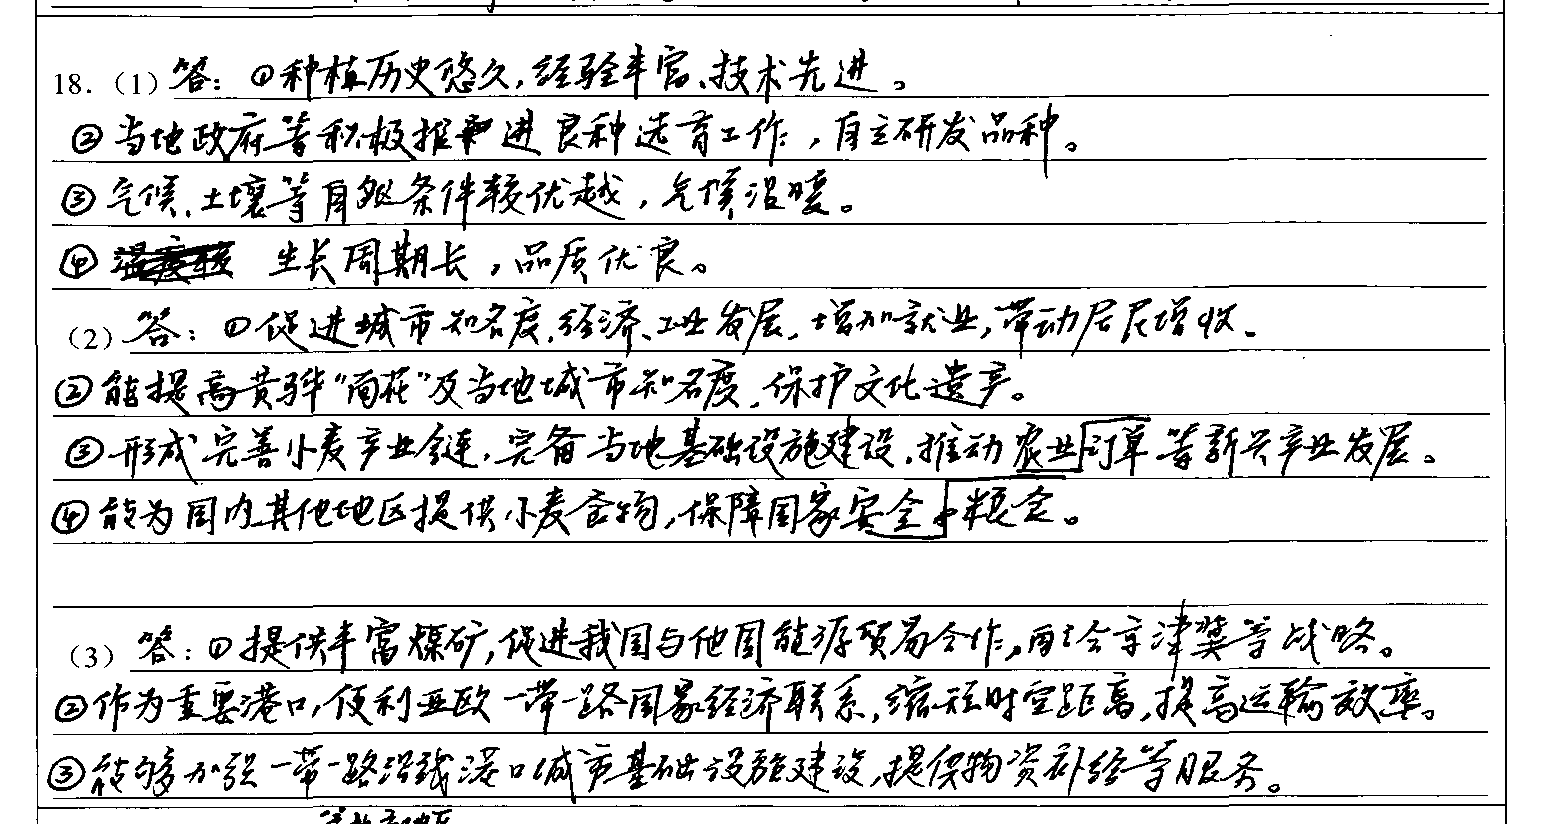 18.（1）答：①种植历史悠久，经验丰富、技术先进。
②当地政府等积极推进良种选育工作，自主研发品种。
③气候、土壤等自然条件较优越，气候温暖。
④ 生长周期长，品质优良。
（2）答：①促进城市知名度、经济、工业发展，增加就业，带动居民增收、
②能提高黄骅“面花”及当地城市知名度，保护文化遗产。
③形成完善小麦产业链，完备当地基础设施建设，推动农业订单等新兴产业发展。
④能为国内其他地区提供小麦食物，保障国家安全粮食。
（3）答：①提供丰富煤矿，促进我国与他国能源贸易合作，配合京津冀等战略。
②作为重要港口，便利亚欧一带一路国家经济联系，缩短时空距离，提高运输效率。
③能够加强一带一路沿线港口城市基础设施建设，提供物资补给等服务。